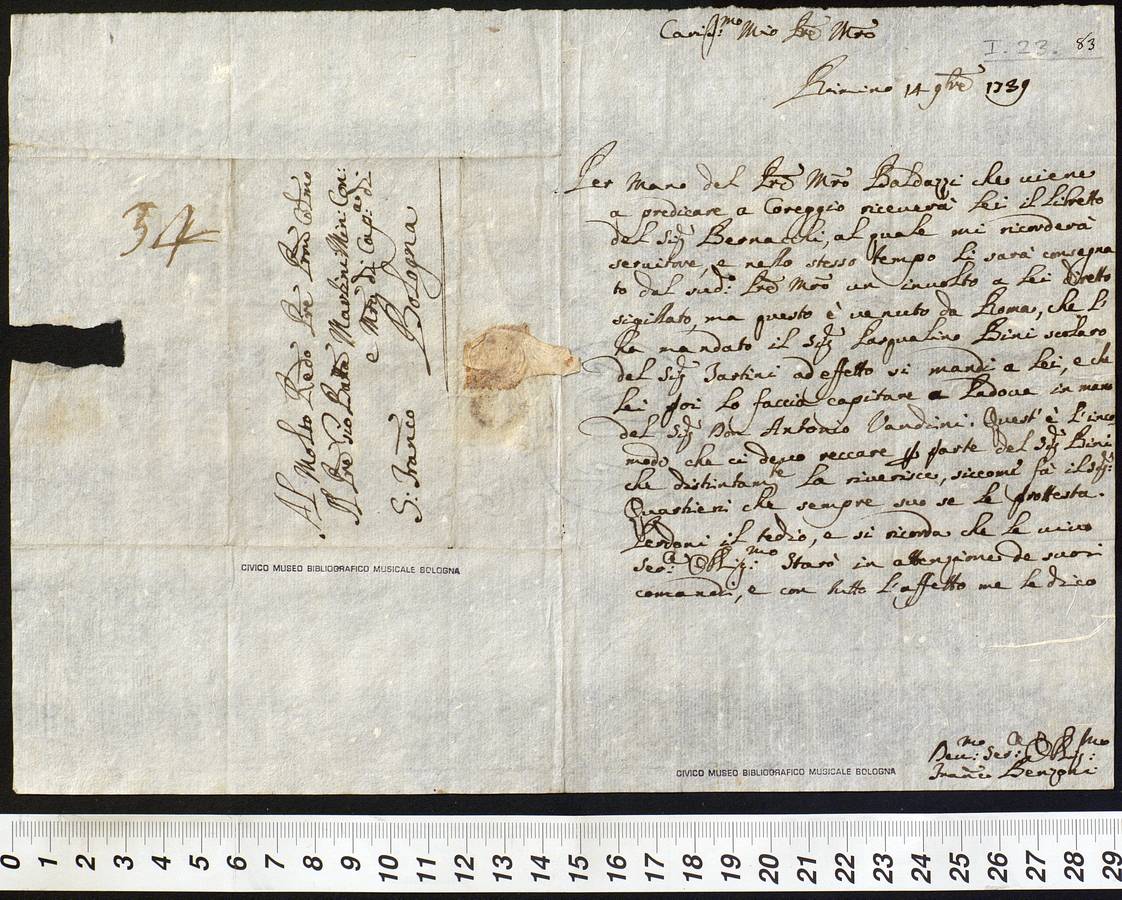 Caris.mo Mio Pre Mro
I. 23. 83
Rimino 14 9bre 1739
Per mano del Pre Mro Baldazzi che viene
a predicare a Coreggio riceverà lei il libretto
del Sig. Bernacchi, al quale mi ricorderà
servitore, e nello stesso tempo li sarà consegna
to dal sud. Pre Mro un involto a lei diretto
sigillato, ma questo è venuto da Roma, che li
ha mandato il Sig. Pasqualino Bini scolaro
del Sig. Tartini ad effetto si mandi a lei, e che
lei poi lo faccia capitare a Padova in mano
del Sig. Don Antonio Vandini. Quest' è l'inco
modo che ci devo reccare p parte del Sig. Bini
che distintam.te la riverisce, siccome fà il Sig.
Quartieri che sempre suo se le protesta.
Perdoni il tedio, e si ricorda che le vivo
Ser. Obblig.mo Starò in attenzione de suoi
comandi, e con tutto l'affetto me le dico
Dev.mo Ser. Obblig.mo
Franco Benzoni
Al Molto Redo Pre Pron Colmo
Il Pre Gio Batta Martini Min: Con:
e Mro di Cap.a di
S: Franco Bologna
54
CIVICO MUSEO BIBLIOGRAFICO MUSICALE BOLOGNA
CIVICO MUSEO BIBLIOGRAFICO MUSICALE BOLOGNA
0 1 2 3 4 5 6 7 8 9 10 11 12 13 14 15 16 17 18 19 20 21 22 23 24 25 26 27 28 29